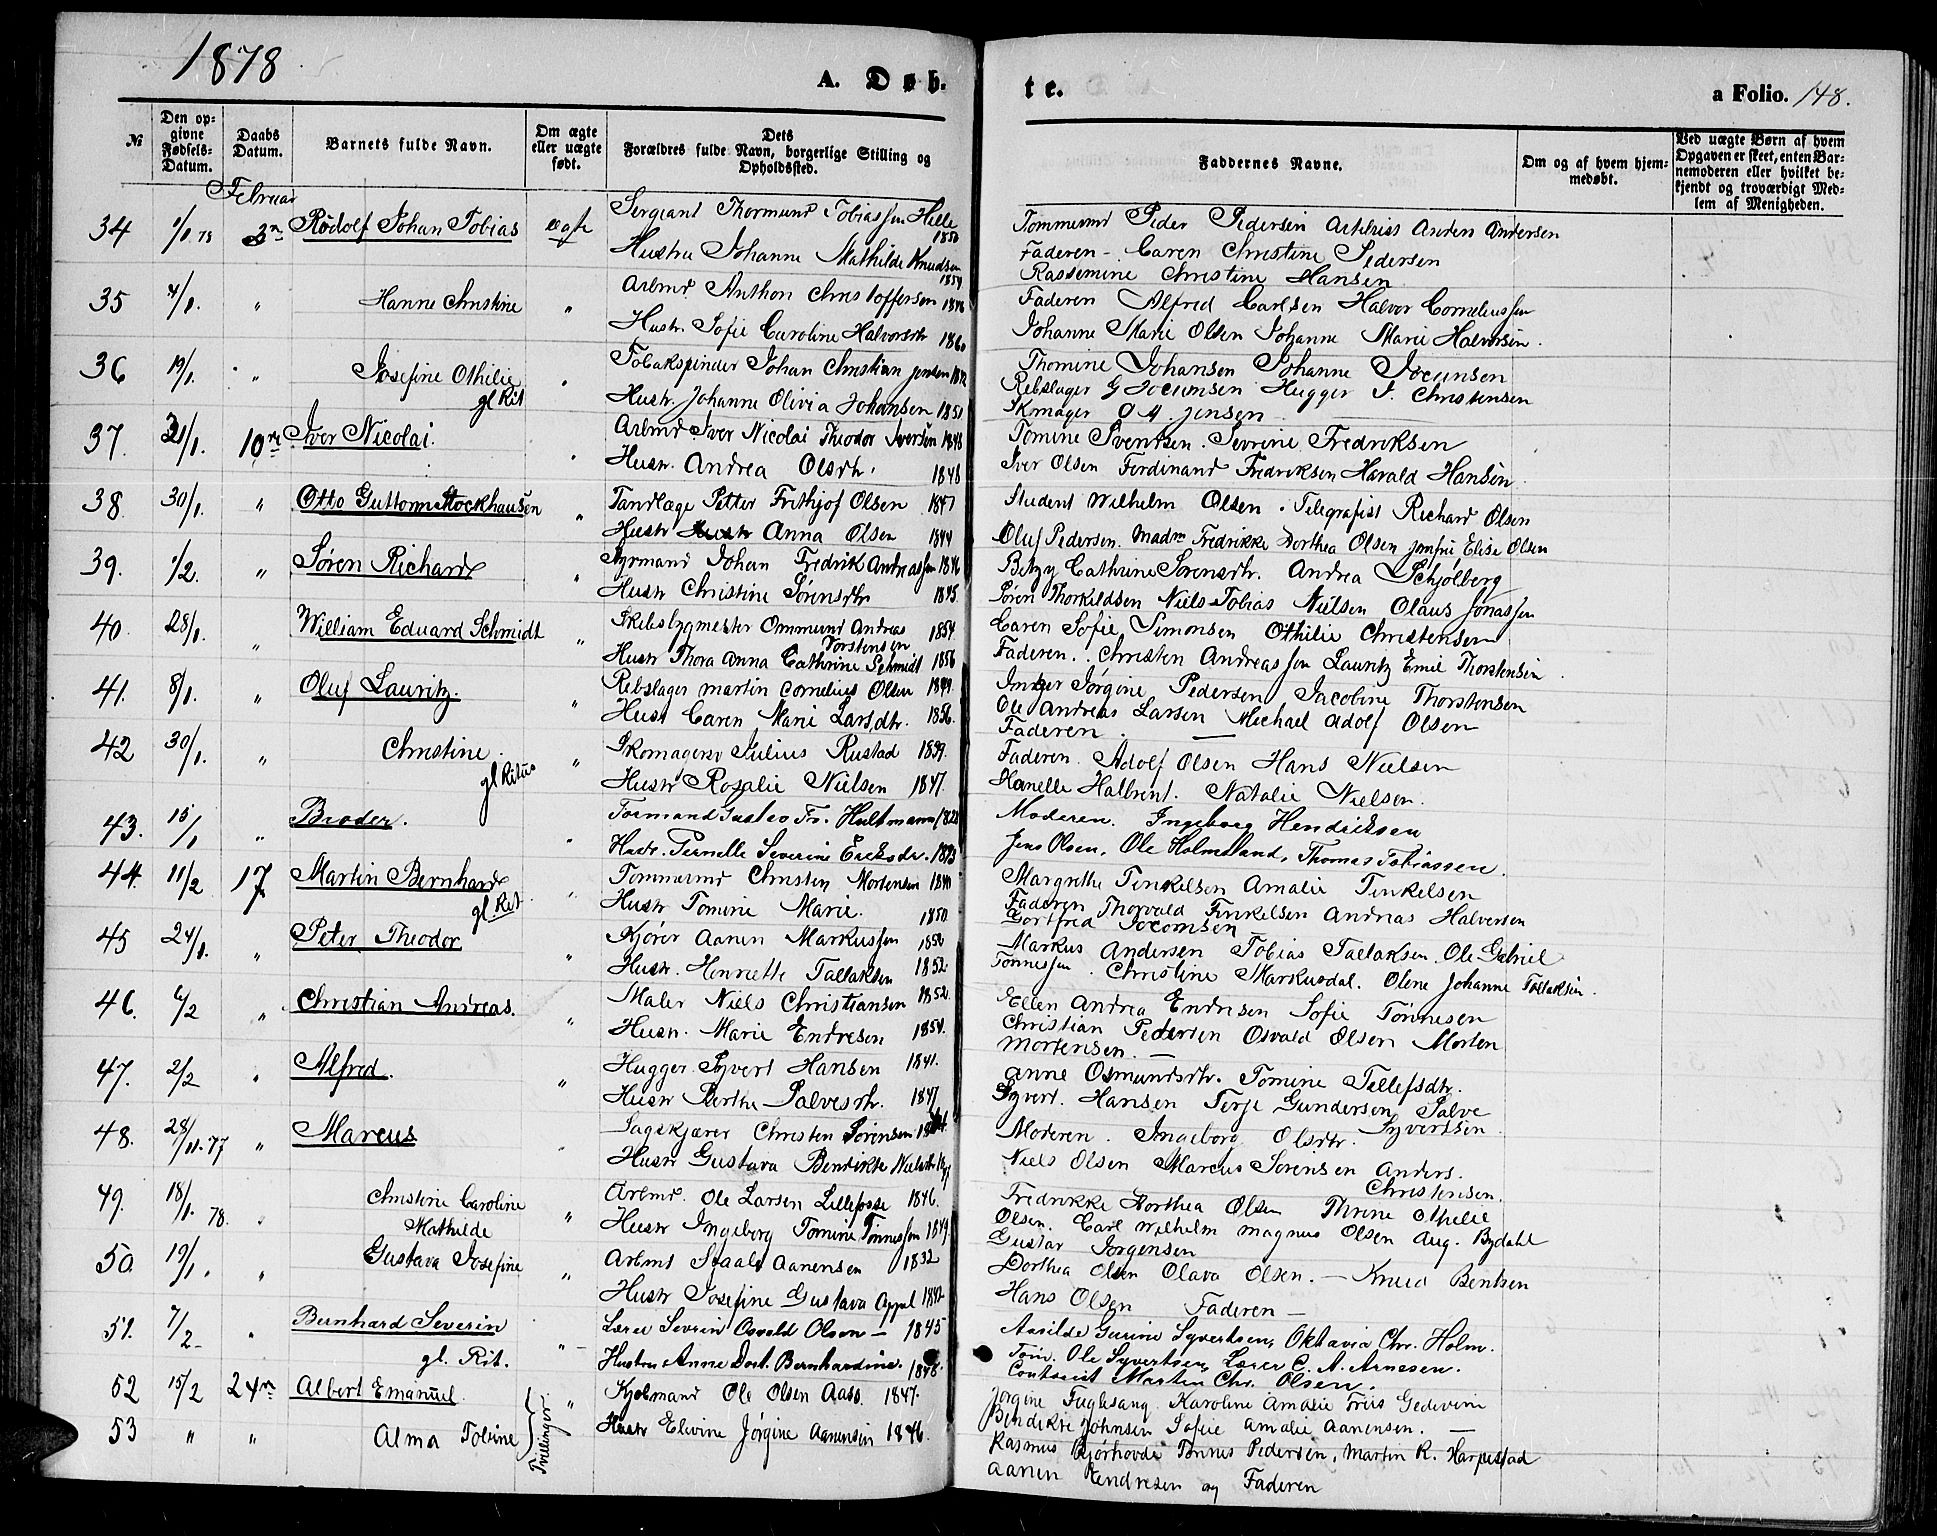 1878
A. Døb.
te.
a Folio. 148.
№
Den op-
givne
Fødsels-
Datum.
Daabs
Datum.
Barnets fulde Navn.
Om ægte
eller uægte
født.
Dets
Forældres fulde Navn, borgerlige Stilling og
Opholdssted.
Faddernes Navne.
Om og af hvem hjem-
medøbt.
Ved uægte Børn af hvem
Opgaven er skeet, enten Bar-
nemoderen eller hvilket be-
kjendt og troværdigt Med-
lem af Menigheden.
Februar
34 78 3 Rudolf Johan Tobias ægte Sergeant Thormund Tobiassen Hille 1850
Hustru Johanne Mathilde Knudsen 1854
Tømmermd Peder Pedersen Anders Andersen
Faderen - Caren Christine Pedersen
Rassemine Christine Hansen
35 4/1. " Hanne Christine " Arbmd Anthon Christoffersen 1846
Hustr. Sofie Caroline Halvorsdtr 1860
Faderen Alfred Carlsen Halvor Corneliussen
Johanne Marie Olsen Johanne Marie Halvorsen.
36 19/1. " Josefine Othilie gl Rit " Tobakspinder Johan Christian Jensen
Hustr. Johanne Olivia Johansen 1851
Thomine Johansen Johanne Jocumsen
Rebslager G Jocumsen Hugger J. Christensen
Skmager O M. Jensen
37. 31/1. 10 Iver Nicolai. " Arbmd Iver Nicolai Theodor Iversen 1848
Hustr. Andrea Olsdtr. 1846
Tomine Svensen. Sevrine Fredriksen
Iver Olsen Ferdinand Fredriksen Harald Hansen
38 30/1. " Otto Guttorm Stockhausen " Tandlæge Petter Frithjof Olsen 1847
Hustr Anna Olsen 1844
Student Wilhelm Olsen. Telegrafist Richard Olsen
Oluf Pedersen. Madm Fredrikke Dorthea Olsen Jomfru Elise Olsen
39. 1/2. " Søren Richard " Styrmand Johan Fredrik Andreassen 1846
Hustr Christine Sørensdtr 1845
Betzy Cathrine Sørensdtr. Andrea Schjølberg
Søren Thorkildsen Niels Tobias Nielsen Olaus Jonassen
40. 28/1. " William Eduard Schmidt " Skibsbygmester Ommund Andreas 1854.
Torstensen
Hustr Thora Anna Cathrine Schmidt 1856
Caren Sofie Simonsen Othilie Christensen
Faderen. Christen Andreassen Lauritz Emil Thorstensen
41. 8/1. " Oluf Lauritz. " Rebslager Martin Cornelius Olsen 1849.
Hustr Caren Marie Larsdtr. 1856.
Inger Jørgine Pedersen Jacobine Thorstensen
Ole Andreas Larsen Michael Adolf Olsen
Faderen.
42 30/1. " Christine. gl Ritus " Skomagersv Julius Rustad 1839.
Hustr Rosalie Nielsen 1847.
Faderen. Adolf Olsen Hans Nielsen
Hanelle Halbrent. Natalie Nielsen.
43. 15/1 " Broder. " Formand Gustav Fr. Hultmann 1828
Hustr. Pernelle Severine Eriksdr. 1833
Moderen. Ingeborg Hendriksen
Jens Olsen, Ole Holmsland, Thomas Tobiassen.
44. 11/2 17 Martin Bernhard gl. Rit " Tømmermd Christen Mortensen 1840
Hustr Tomine Marie. 1850.
Margrethe Finkelsen Amalie Finkelsen
Faderen Thorvald Finkelsen Andreas Halversen
Gortfred Jocomsen
45 24/1. " Peter Theodor " Kjører Aanen Markussen 1850
Hustr. Henriette Tallaksen 1852
Markus Andersen Tobias Tallaksen. Ole Gabriel
Tønnessen. Christine Markusdal. Olene Johanne Tallaksen.
46. 6/2 " Christian Andreas. " Maler Niels Christiansen 1852.
Hustr. Marie Endresen 1854.
Ellen Andrea Endresen Sofie Tønnesen
Christian Pedersen Osvald Olsen Morten
Mortensen.
47. 2/2 " Alfred. " Hugger. Syvert Hansen 1841.
Hustr Berthe Salvesdtr. 1847
Anne Osmundsdtr. Tomine Tellefsdtr.
Syvert. Hansen Terje Gundersen Salve
Syvertsen.
48. 28/11. 77 " Marcus " Sagskjærer Christen Sørensen
Hustr Gustava Bendikte Nielsdtr
Moderen. Ingeborg Olsdtr.
Niels Olsen Marcus Sørensen Anders.
Christensen.
49. 18/1. 78. " Christine Caroline
Mathilde " Arbmd. Ole Larsen Lillefosse 1846.
Hustr Ingeborg Tomine Tønnessen 1849.
Fredrikke Dorthea Olsen Thrine Othelie
Olsen. Carl Wilhelm Magnus Olsen Aug. Bydahl
Gustav Jørgensen
50. 19/1. " Gustava Josefine " Arbmd Staale Aanensen 1832
Hustr Josefine Gustava Appel 1842
Dorthea Olsen Olava Olsen. - Knud Bentsen
Hans Olsen Faderen -
51. 7/2 " Bernhard Severin gl. Rit. " Lærer Sevrin Osvald Olsen - 1845
Hustru Anne Dort. Bernhardine. 1848.
Aasilde Gurine Syvertsen, Oktavia Chr. Holm.
Tøm. Ole Syvertsen, Lærer C. A. Arnesen.
Contorist Martin Chr. Olsen.
52 15/2 24 Albert Emanuel. " Kjølmand Ole Olsen Aass. 1847.
53 " " Alma Tobine Tvillinger Hustr Elevine Jørgine Aanensen 1846.
Jørgine Fuglesang. Karoline Amalie Friis Gedevini
Bendikte Johnsen Sofie Amalie Aanensen.
Rasmus Bjørhovde Tønnes Pedersen, Martin R. Harpestad
Aanen Hendresen og Faderen